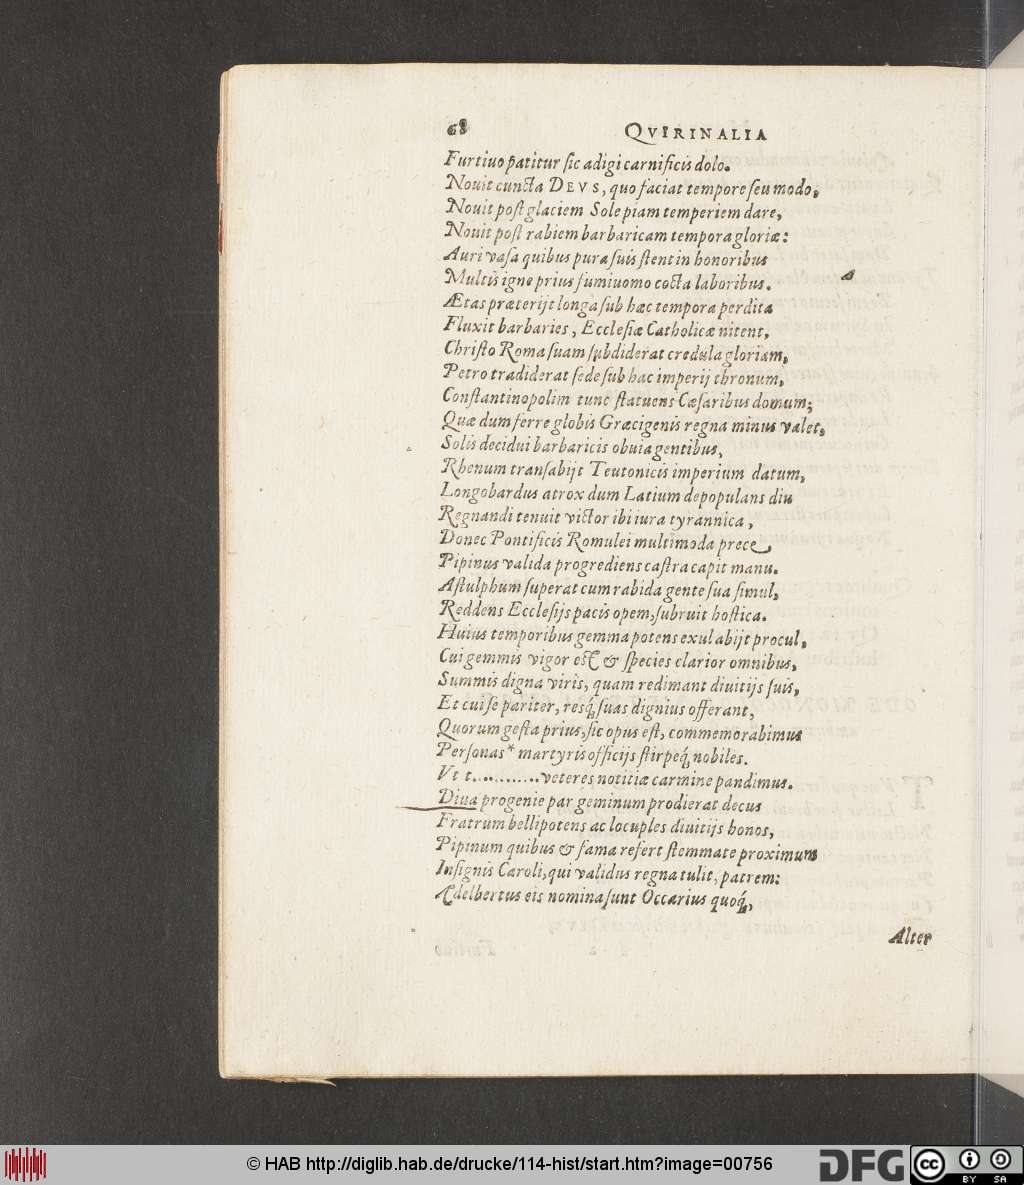 68 QVIRINALIA
Furtiuo patitur sic adigi carnificis dolo.
Nouit cuncta DEVS, quo faciat tempore seu modo,
Nouit post glaciem Sole piam temperiem dare,
Nouit post rabiem barbaricam tempora gloriæ:
Auri vasa quibus pura suis stent in honoribus
Multis igne prius fumiuomo cocta laboribus.
Ætas præterijt longa sub hæc tempora perdita
Fluxit barbaries, Ecclesiæ Catholicæ nitent,
Christo Roma suam subdiderat credula gloriam,
Petro tradiderat sede sub hac imperij thronum,
Constantinopolim tunc statuens Cæsaribus domum;
Quæ dum ferre globis Græcigenis regna minus valet,
Solis decidui barbaricis obuia gentibus,
Rhenum transabijt Teutonicis imperium datum,
Longobardus atrox dum Latium depopulans diu
Regnandi tenuit victor ibi iura tyrannica,
Donec Pontificis Romulei multimoda prece,
Pipinus valida progrediens castra capit manu.
Astulphum superat cum rabida gente sua simul,
Reddens Ecclesijs pacis opem, subruit hostica.
Huius temporibus gemma potens exul abijt procul,
Cui gemmis vigor est & species clarior omnibus,
Summis digna viris, quam redimant diuitijs suis,
Et cui se pariter, resq́; suas dignius offerant,
Quorum gesta prius, sic opus est, commemorabimus
Personas* martyris officijs stirpeq́; nobiles.
Vt t............veteres notitiæ carmine pandimus.
Diua progenie par geminum prodierat decus
Fratrum bellipotens ac locuples diuitijs honos,
Pipinum quibus & fama refert stemmate proximum
Insignis Caroli, qui validus regna tulit, patrem:
Adelbertus eis nomina sunt Occarius quoq́;,
Alter
© HAB http://diglib.hab.de/drucke/114-hist/start.htm?image=00756
DFG
cc BY SA